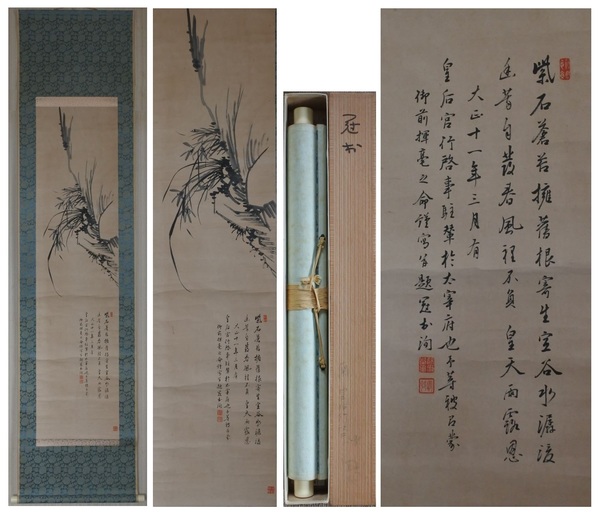 紫石蒼苔擁舊根寄生空谷水潺湲
幽芳自發春風裡不負皇天雨露恩
大正十一年三月有
皇后宮行啓事駐輦於太宰府也予等被召蒙
御前揮毫之命謹寫并題